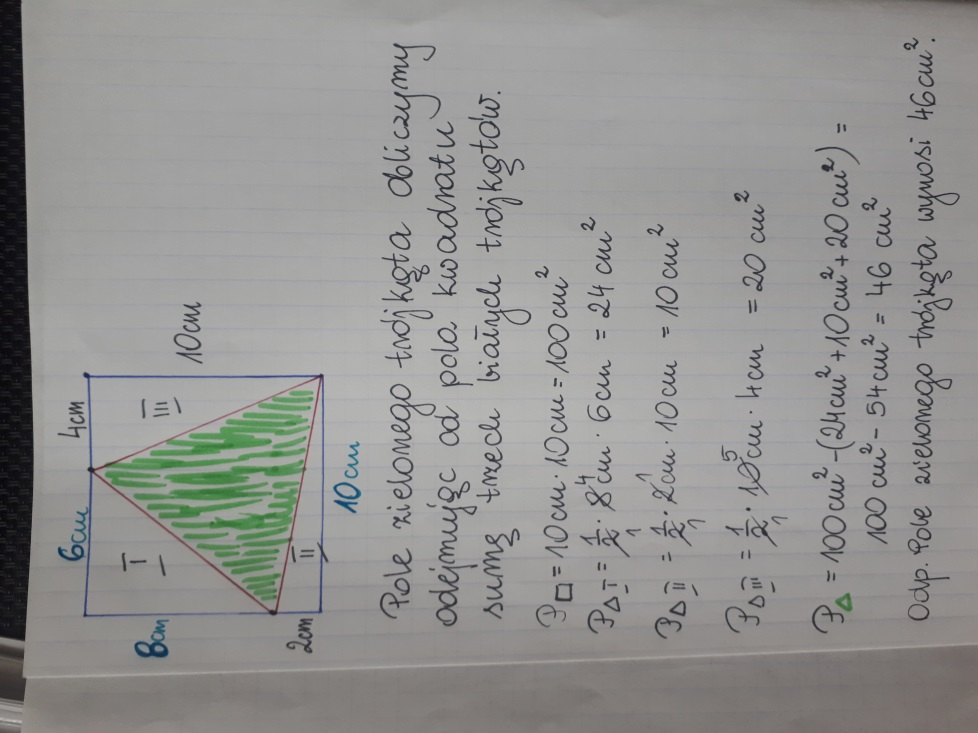 6cm 4cm
8cm I III 10cm
2cm II
10cm
Pole zielonego trójkąta obliczymy
odejmując od pola kwadratu
sumę trzech białych trójkątów.
P□ = 10cm · 10cm = 100cm²
P△I = 1/2 · 8⁴cm · 6cm = 24cm²
P△II = 1/2 · 2¹cm · 10cm = 10cm²
P△III = 1/2 · 10⁵cm · 4cm = 20cm²
P△ = 100cm² - (24cm² + 10cm² + 20cm²) =
100cm² - 54cm² = 46cm²
Odp. Pole zielonego trójkąta wynosi 46cm².